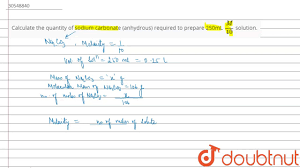 30548840
Calculate the quantity of sodium carbonate (anhydrous) required to prepare 250mL M/10 solution.
Na₂CO₃, Molarity = 1/10
Vol of Sol^n = 250 ml = 0.25 L
Mass of Na₂CO₃ = 'x' g
Molecular Mass of Na₂CO₃ = 106 g
no of moles of Na₂CO₃ = x/106
Molarity = no of moles of Solute
doubtnut